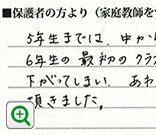 ■保護者の方より（家庭教師を
5年生までは、中か
6年生の最初のクラ
下がってしまい、あわ
頂きました。